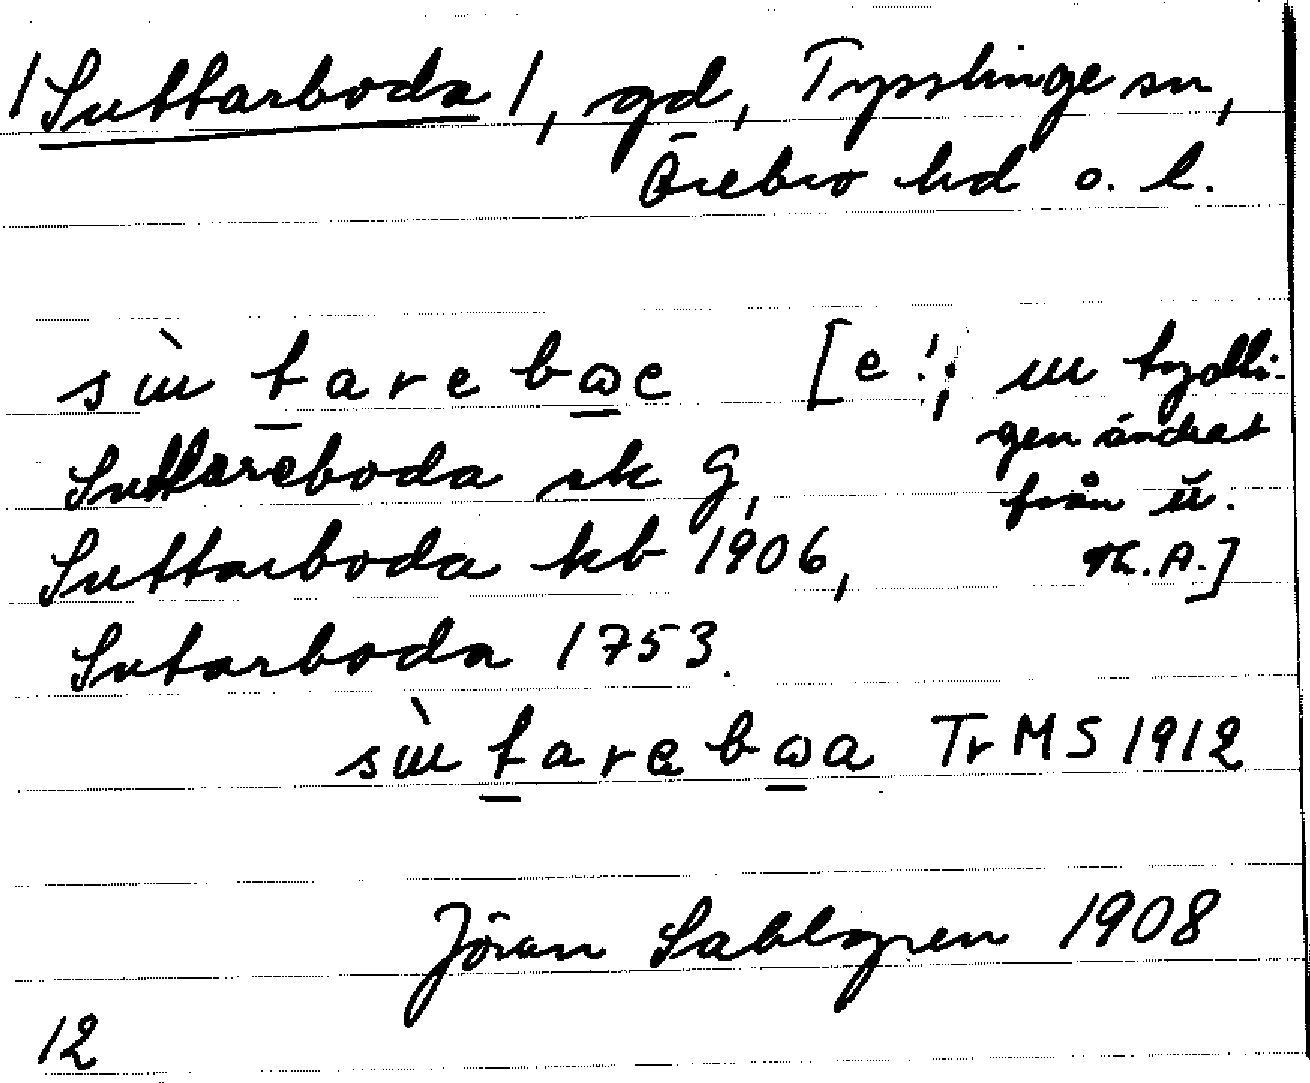 /Suttarboda/, gd, Tysslinge sn,
Örebro hd o. l.
sɯ̀ tarebɷe [e!; ɯ tydli-
gen ändrat
från ŭ.
Th. A.]
Suttareboda sk G,
Suttarboda kb 1906,
Sutarboda 1753.
sɯ̀ tarebɷa Tr MS 1912
Jöran Sahlgren 1908
12